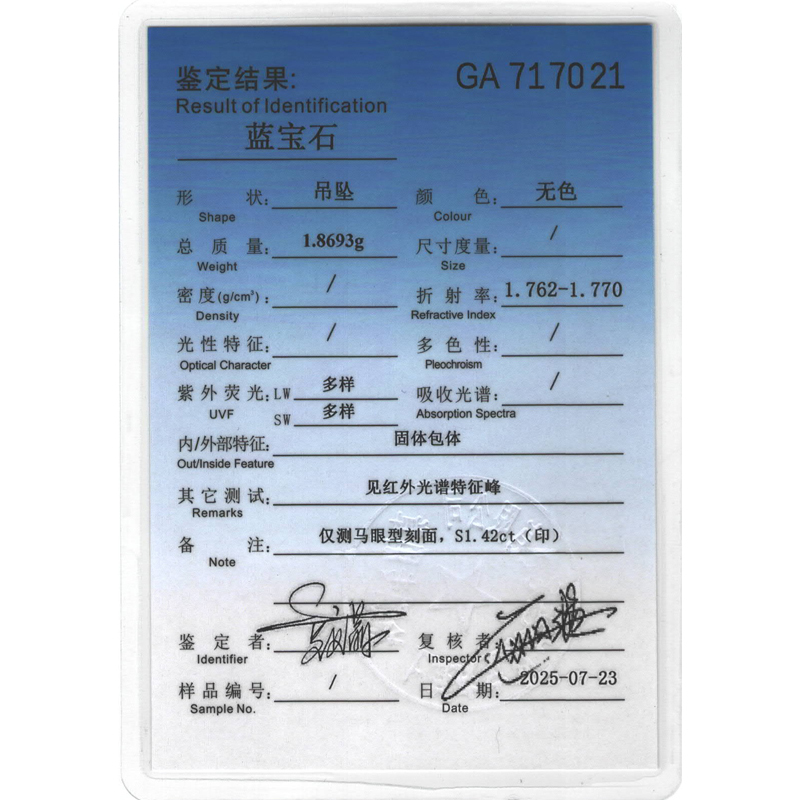 鉴定结果: GA 717021
Result of Identification
蓝宝石
形 状: 吊坠 颜 色: 无色
Shape Colour
总 质 量: 1.8693g 尺寸度量: /
Weight Size
密度(g/cm³): / 折 射 率: 1.762-1.770
Density Refractive Index
光性特征: / 多 色 性: /
Optical Character Pleochroism
紫外荧光: LW 多样 吸收光谱: /
UVF SW 多样 Absorption Spectra
内/外部特征: 固体包体
Out/Inside Feature
其它测试: 见红外光谱特征峰
Remarks
备 注: 仅测马眼型刻面, S1.42ct (印)
Note
鉴 定 者: 复 核 者:
Identifier Inspector
样品编号: / 日 期: 2025-07-23
Sample No. Date